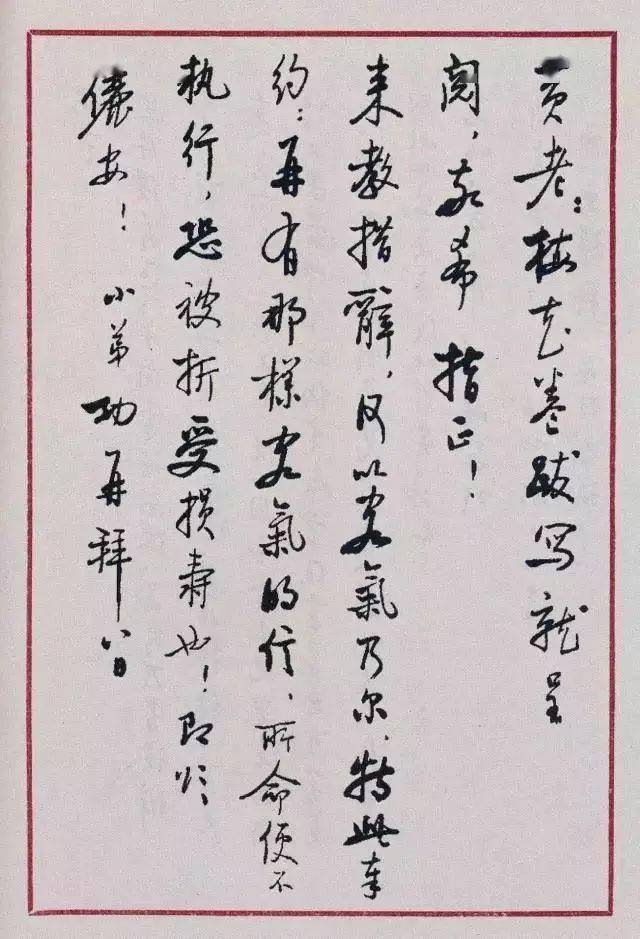 贡老：梅花卷跋写就呈
阅，敬希 指正！
来教措辞，何以客氣乃尔，特此奉
约：再有那樣客氣的信，所命便不
执行，恐被折受损壽也！即颂
俪安！ 小弟功再拜 八日